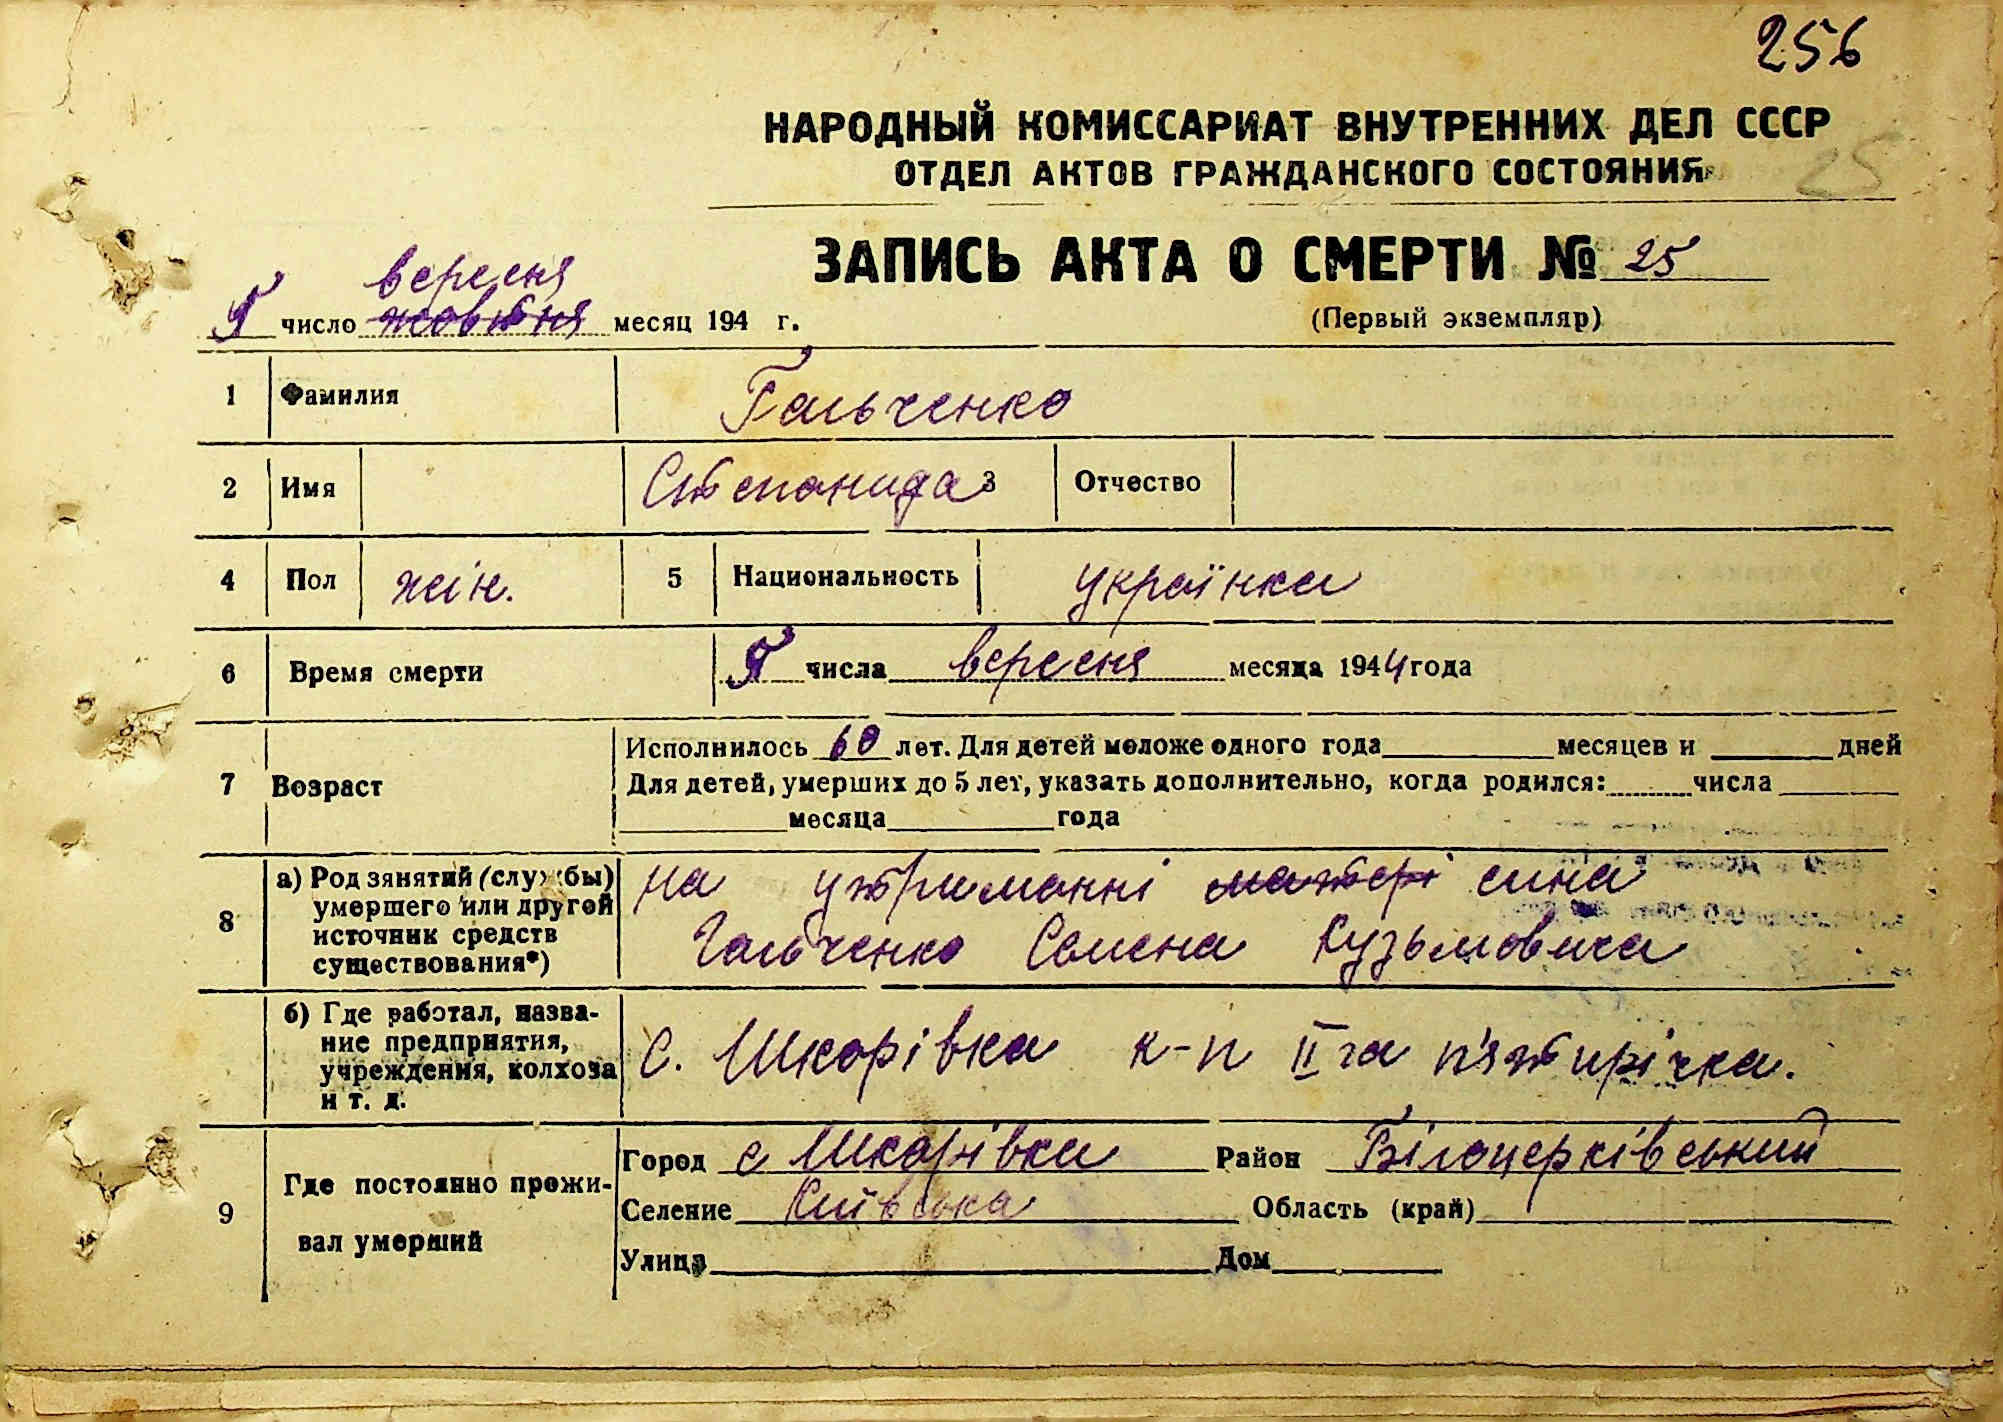 256
НАРОДНЫЙ КОМИССАРИАТ ВНУТРЕННИХ ДЕЛ СССР
ОТДЕЛ АКТОВ ГРАЖДАНСКОГО СОСТОЯНИЯ
25
ЗАПИСЬ АКТА О СМЕРТИ № 25
(Первый экземпляр)
вересня
число жовтня месяц 194 г.
1 Фамилия Гальченко
2 Имя Степанида 3 Отчество
4 Пол жін. 5 Национальность українка
6 Время смерти числа вересня месяца 1944 года
7 Возраст Исполнилось 60 лет. Для детей моложе одного года месяцев и дней
Для детей, умерших до 5 лет, указать дополнительно, когда родился: числа
месяца года
8 а) Род занятий (службы) умершего или другой источник средств существования*) на утриманні матері сина
Гальченко Семена Кузьмовича
б) Где работал, название предприятия, учреждения, колхоза и т. д. с. Шкарівка к-п II га п'ятирічка.
9 Где постоянно проживал умерший Город с Шкарівка Район Білоцерківський
Селение Київська Область (край)
Улица Дом